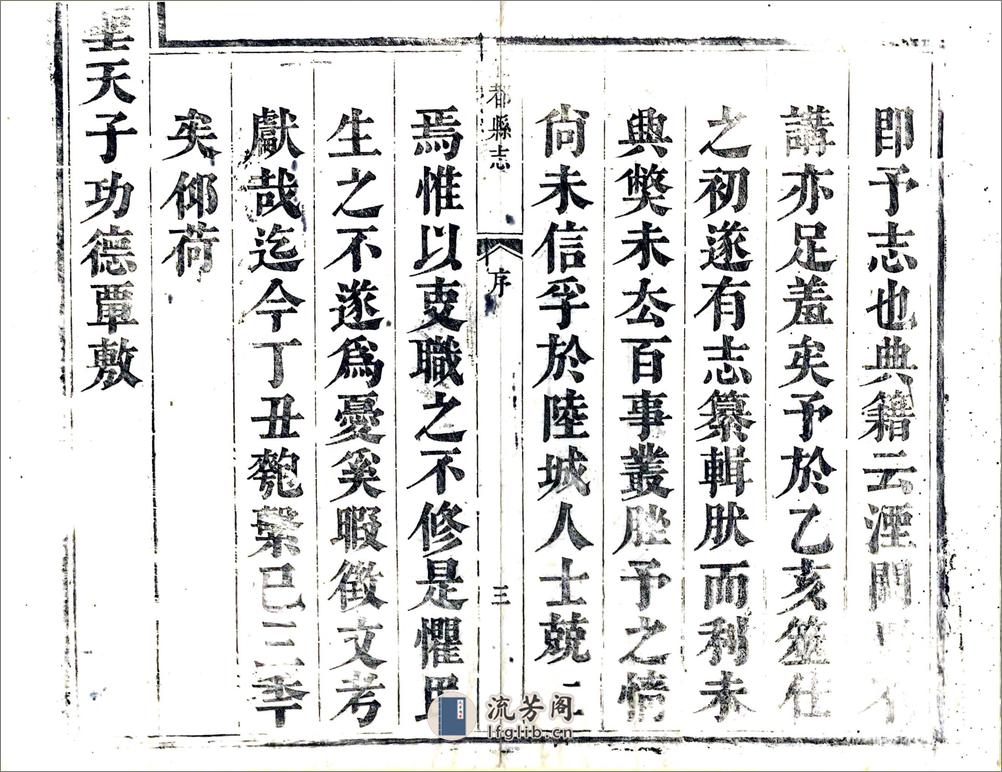 即予志也典籍云湮開
講亦足羞矣予於乙亥筮仕
之初遂有志纂輯肰而利未
興獘未去百事叢脞予之情
尚未信孚於陸城人士兢
都縣志
序
三
焉惟以吏職之不修是懼
生之不遂爲憂奚暇徵文考
獻哉迄今丁丑匏繫已三季
矣仰荷
聖天子功德覃敷
流芳阁
lfglib.cn